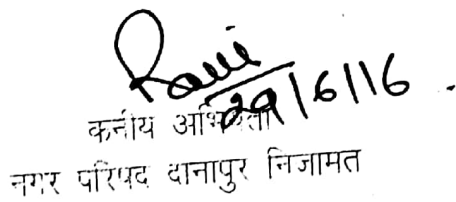 Ravi
29/6/16.
कनीय अभियंता
नगर परिषद दानापुर निजामत